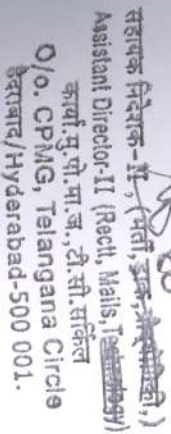 सहायक निदेशक-II, (भर्ती, डाक, प्रौद्योगिकी,)
Assistant Director-II (Rectt, Mails, Technology)
कार्या.मु.पो.मा.ज., टी.सी सर्किल
O/o. CPMG, Telangana Circle
हैदराबाद/Hyderabad-500 001.